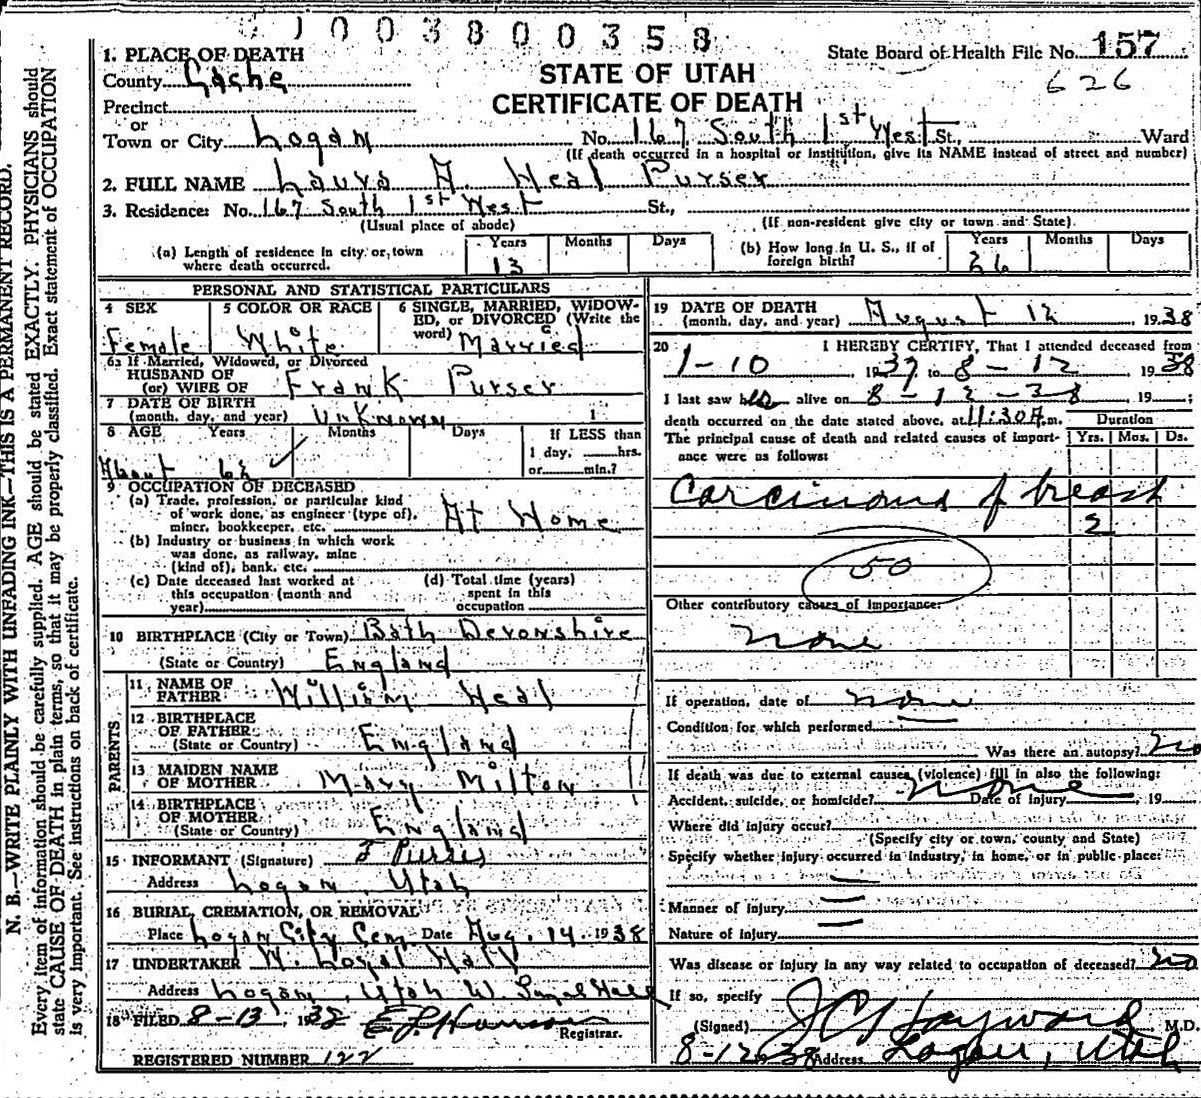 1003800358
State Board of Health File No. 157
626
STATE OF UTAH
CERTIFICATE OF DEATH
1. PLACE OF DEATH
County Cache
Precinct
or
Town or City Logan No. 167 South 1st West St., Ward
(If death occurred in a hospital or institution, give its NAME instead of street and number)
2. FULL NAME Laura A. Heal Purser
3. Residence: No. 167 South 1st West St.,
(Usual place of abode) (If non-resident give city or town and State)
(a) Length of residence in city or town where death occurred. Years 13 Months Days
(b) How long in U. S., if of foreign birth? Years 36 Months Days
PERSONAL AND STATISTICAL PARTICULARS
4 SEX Female
5 COLOR OR RACE White
6 SINGLE, MARRIED, WIDOWED, or DIVORCED (Write the word) Married
6a If Married, Widowed, or Divorced
HUSBAND OF
(or) WIFE OF Frank Purser
7 DATE OF BIRTH
(month, day, and year) Unknown 1
8 AGE Years Months Days If LESS than
1 day, hrs.
or min.?
About 62 ✓
9 OCCUPATION OF DECEASED
(a) Trade, profession, or particular kind
of work done, as engineer (type of),
miner, bookkeeper, etc. At Home
(b) Industry or business in which work
was done, as railway, mine
(kind of), bank, etc.
(c) Date deceased last worked at
this occupation (month and
year)
(d) Total time (years)
spent in this
occupation
10 BIRTHPLACE (City or Town) Bath Devonshire
(State or Country) England
PARENTS
11 NAME OF
FATHER William Heal
12 BIRTHPLACE
OF FATHER
(State or Country) England
13 MAIDEN NAME
OF MOTHER Mary Milton
14 BIRTHPLACE
OF MOTHER
(State or Country) England
15 INFORMANT (Signature) F Purser
Address Logan, Utah
16 BURIAL, CREMATION, OR REMOVAL
Place Logan City Cem Date Aug. 14 1938
17 UNDERTAKER W. Loyal Hall
Address Logan, Utah W. Loyal Hall
18 FILED 8-13, 1938
Registrar.
REGISTERED NUMBER 122
19 DATE OF DEATH
(month, day, and year) August 12, 1938
20 I HEREBY CERTIFY, That I attended deceased from
1-10 1937 to 8-12 1938
I last saw her alive on 8-12-38, 19 ;
death occurred on the date stated above, at 11:30 A.m.
Duration
The principal cause of death and related causes of importance were as follows: Yrs. Mos. Ds.
Carcinoma of breast
2
50
Other contributory causes of importance:
none
If operation, date of none
Condition for which performed
Was there an autopsy? no
If death was due to external causes (violence) fill in also the following:
Accident, suicide, or homicide? none Date of injury , 19
Where did injury occur?
(Specify city or town, county and State)
Specify whether injury occurred in industry, in home, or in public place:
Manner of injury
Nature of injury
Was disease or injury in any way related to occupation of deceased? no
If so, specify
(Signed) J C Hayward M.D.
8-12-38 Address Logan, Utah
N. B.—WRITE PLAINLY WITH UNFADING INK—THIS IS A PERMANENT RECORD.
Every item of information should be carefully supplied. AGE should be stated EXACTLY. PHYSICIANS should
state CAUSE OF DEATH in plain terms, so that it may be properly classified. Exact statement of OCCUPATION
is very important. See instructions on back of certificate.